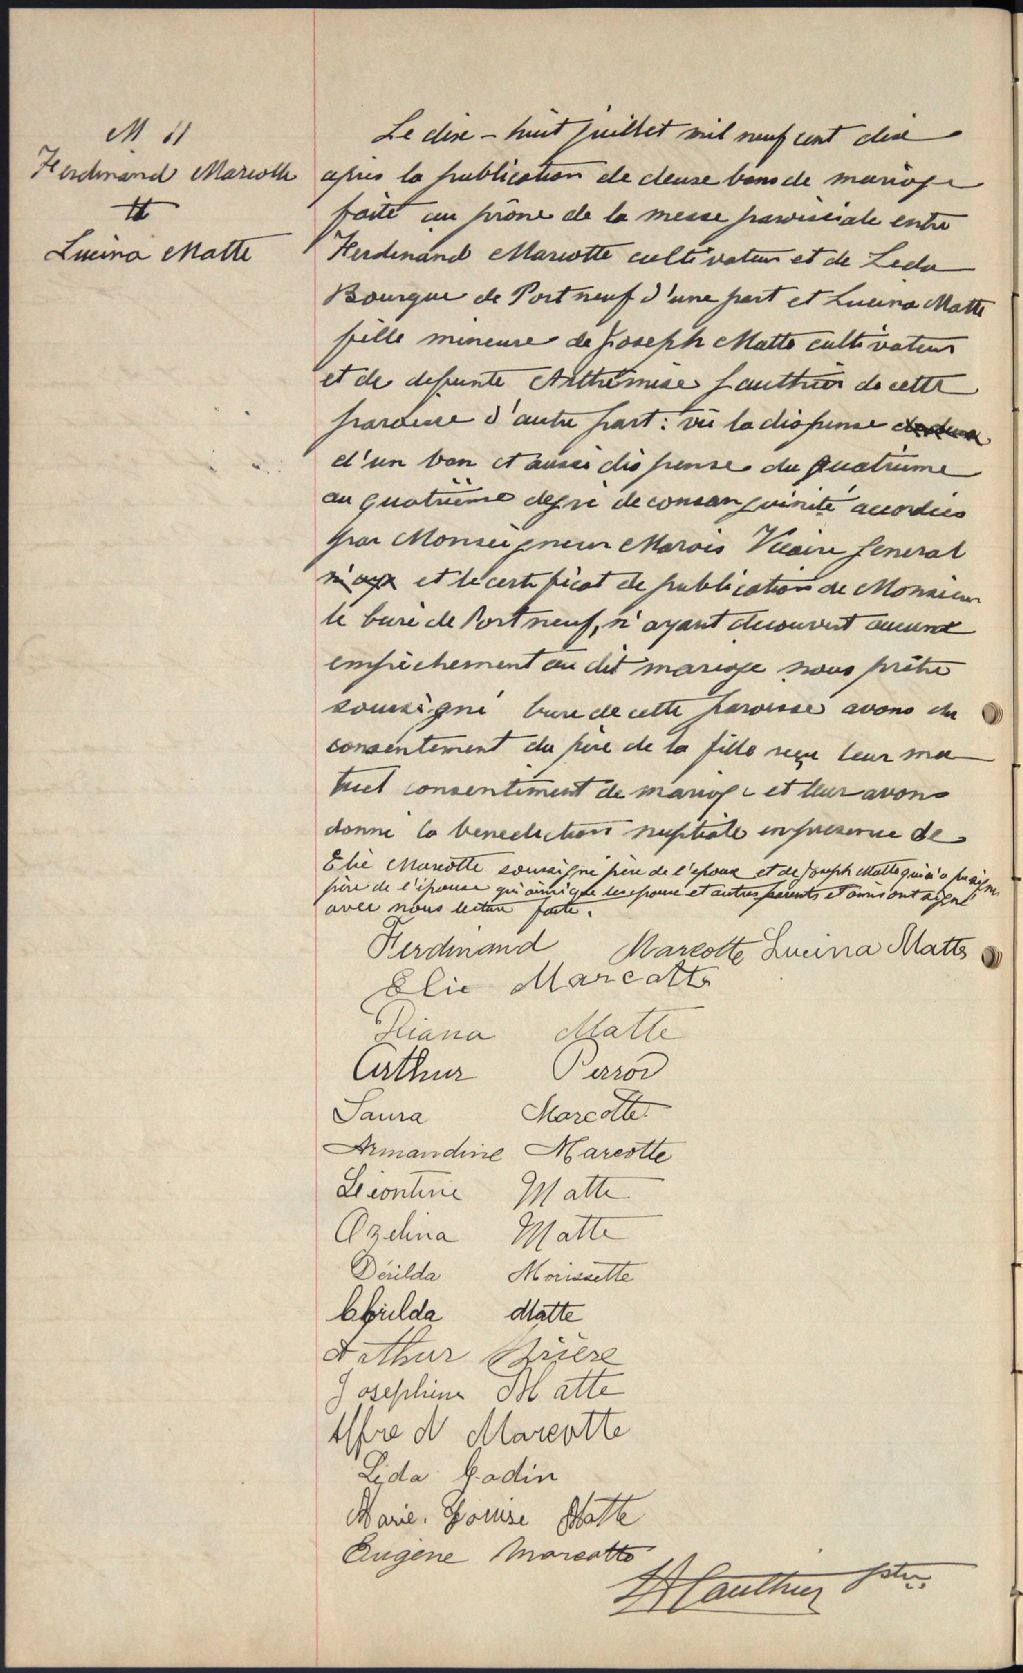 M 11
Ferdinand Marcotte
&
Lucina Matte
Le dix-huit juillet mil neuf cent dix
après la publication de deux bans de mariage
faite au prône de la messe paroissiale entre
Ferdinand Marcotte cultivateur et de Leda
Bourque de Portneuf d'une part et Lucina Matte
fille mineure de Joseph Matte cultivateur
et de defunte Arthémise Gauthier de cette
paroisse d'autre part: vu la dispense
d'un ban et aussi dispense du quatrième
au quatrième degré de consanguinité accordées
par Monseigneur Marois Vicaire general
n'aya et le certificat de publication de Monsieur
le curé de Portneuf, n'ayant decouvert aucune
empêchement au dit mariage nous prêtre
soussigné cure de cette paroisse avons du
consentement du père de la fille reçu leur mu
tuel consentiment de mariage et leur avons
donné la benediction nuptiale en presence de
Elie Marcotte soussigné père de l'epoux et de Joseph Matte qui n'a pu signer
père de l'épouse qui ainsi que les epoux et autres parents et amis ont signé
avec nous lecture faite.
Ferdinand Marcotte Lucina Matte
Elie Marcotte
Diana Matte
Arthur Perron
Laura Marcotte
Armandine Marcotte
Léontine Matte
Azelina Matte
Dérilda Morissette
Matte
Arthur Brière
Josephine Matte
Alfred Marcotte
Léda Godin
Marie. Louise Matte
Eugène Marcotte
Gauthier ptre